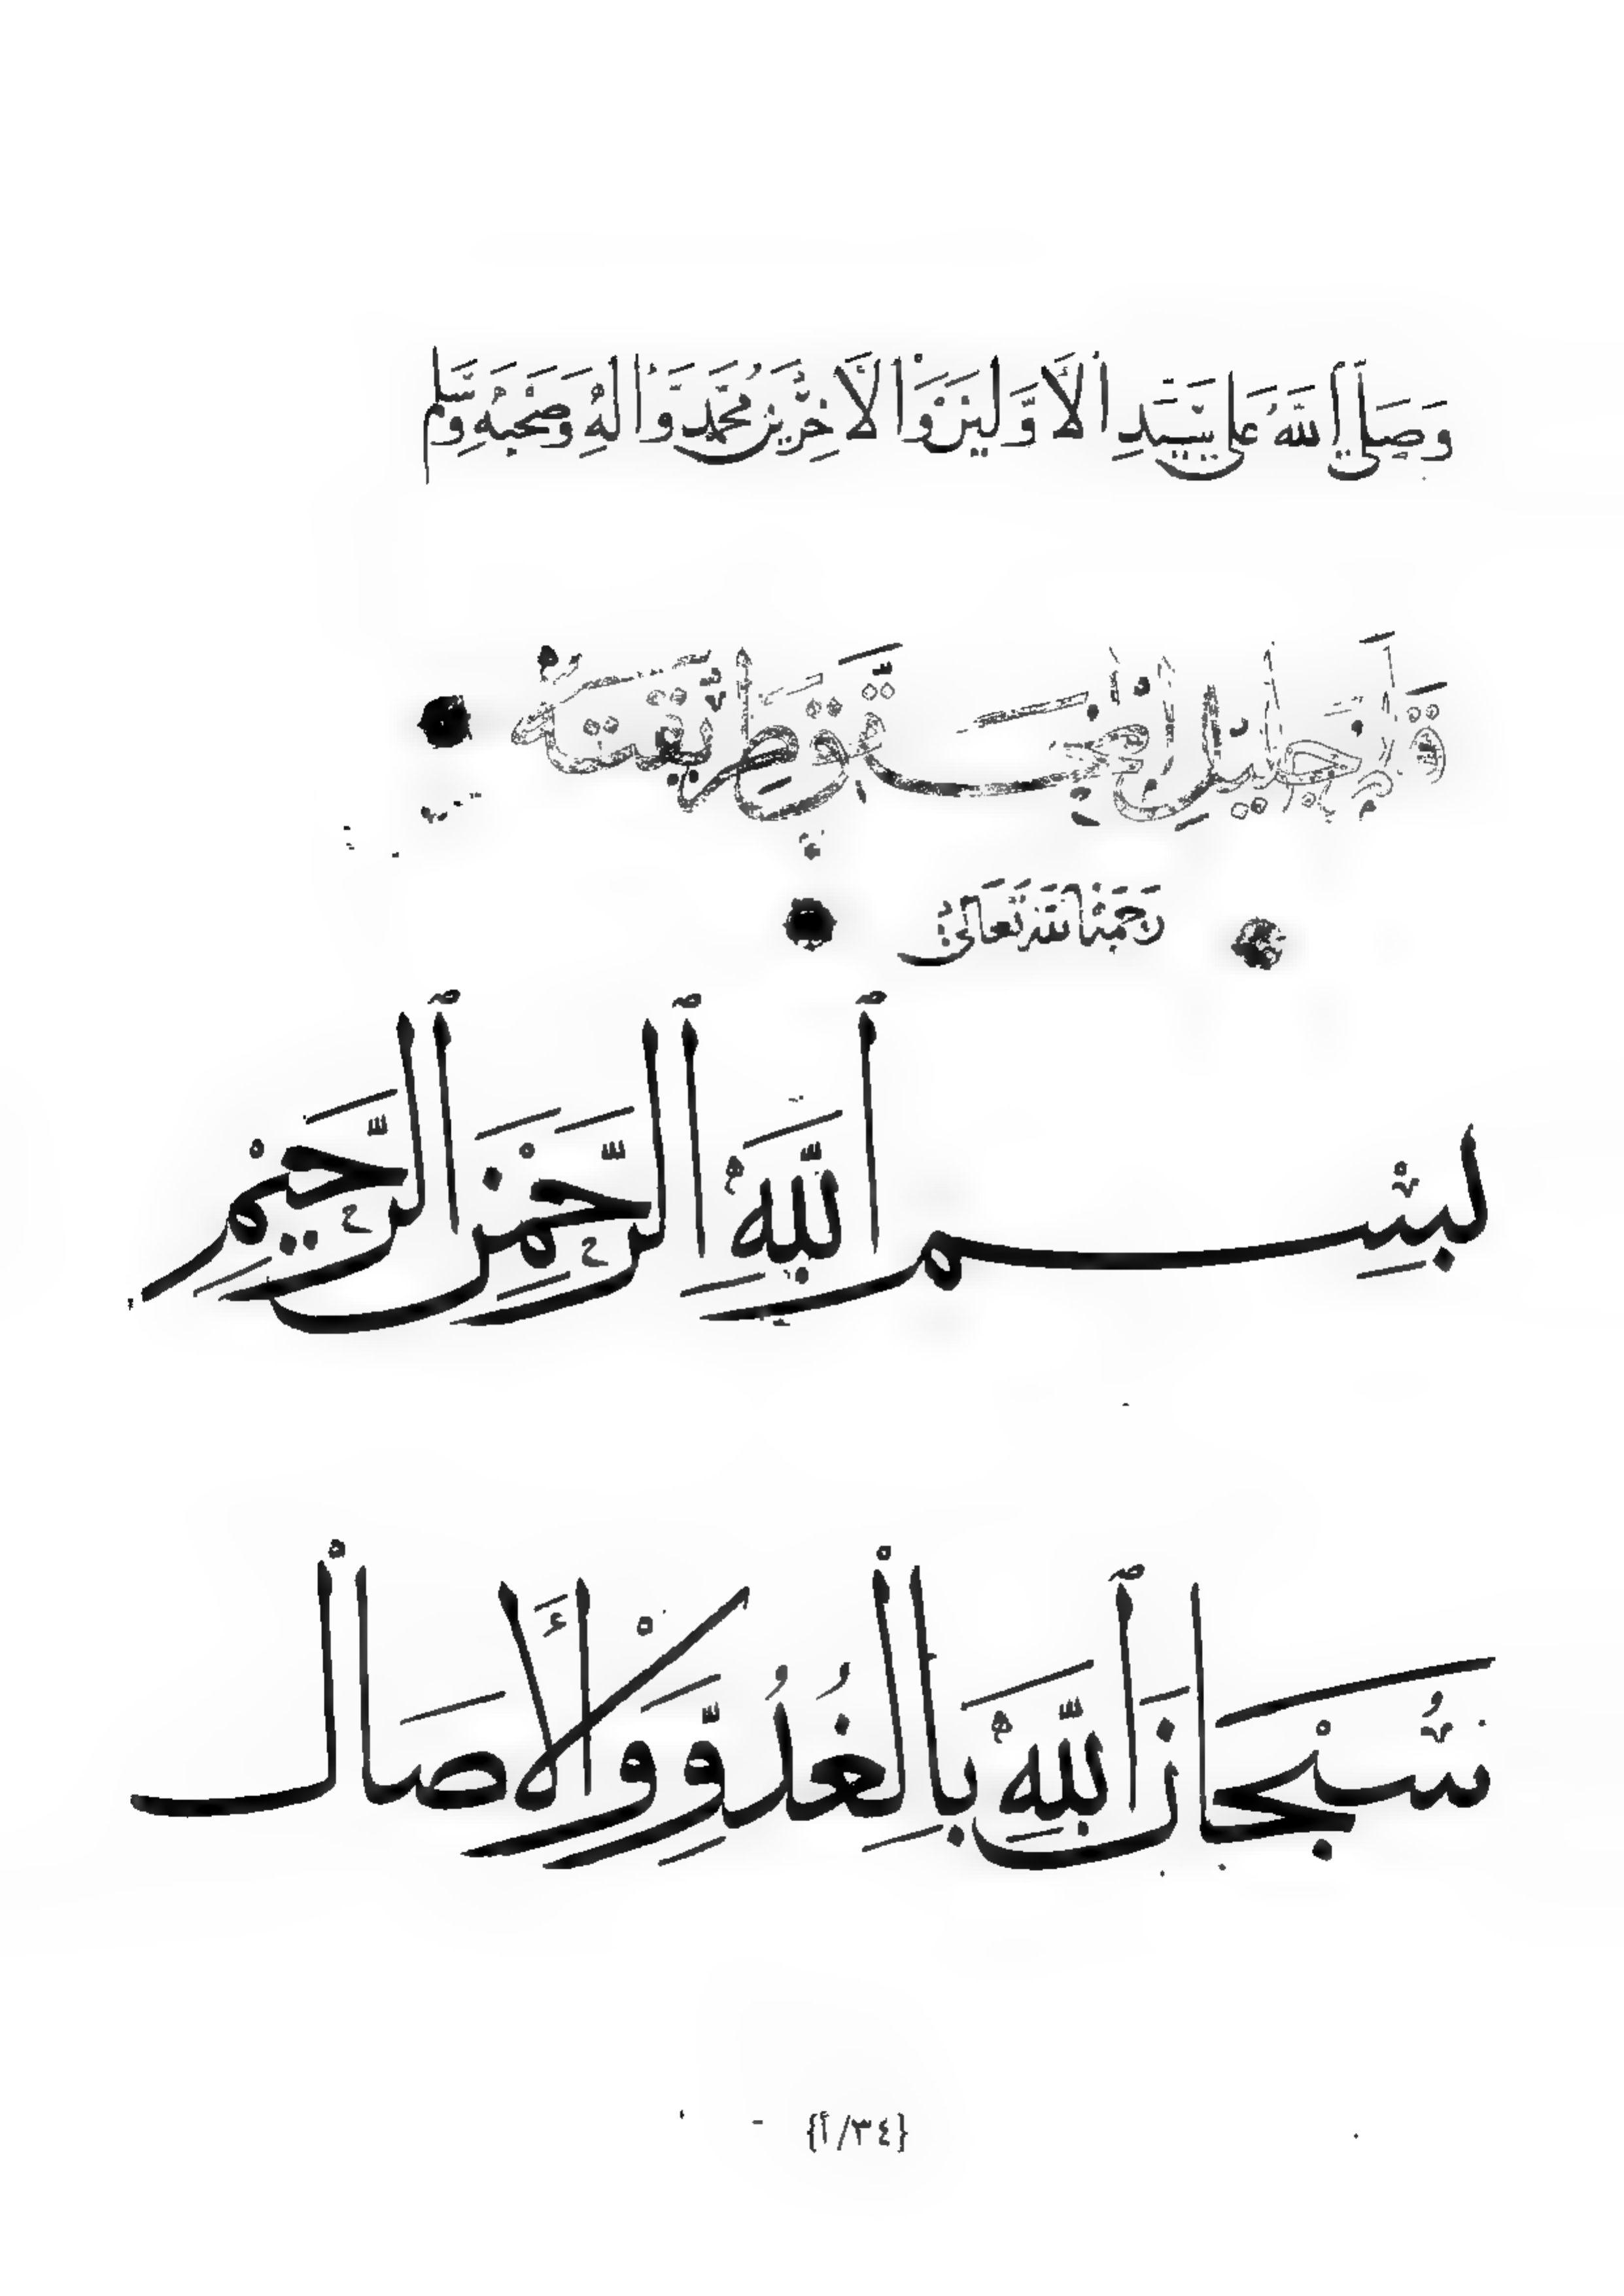 وَصَلَّى اللهُ عَلَى سَيِّدِ الْأَوَّلِينَ وَالْآخِرِينَ مُحَمَّدٍ وَآلِهِ وَصَحْبِهِ وَسَلَّمَ
وَطَرِيقَتُهُ
رَحِمَهُ اللهُ تَعَالَى
بِسْمِ ٱللَّهِ ٱلرَّحْمَنِ ٱلرَّحِيْمِ
سُبْحَانَ ٱللَّهِ بِالْغُدُوِّ وَالْأَصَالْ
{٣٤/أ}